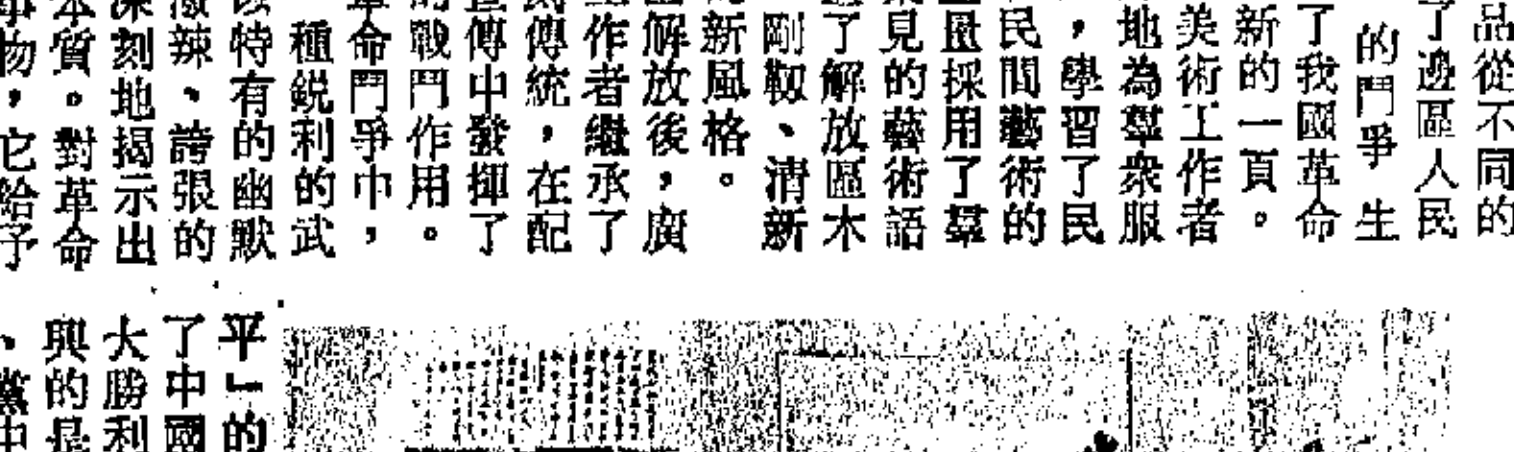 品從不同的
了邊區人民
的鬥爭生
了我國革命
新的一頁。
美術工作者
地為羣衆服
，學習了民
民間藝術的
量採用了羣
見的藝術語
了解放區木
剛韌、清新
新風格。
解放後，廣
作者繼承了
傳統，在配
傳中發揮了
戰鬥作用。
命鬥爭中，
種銳利的武
特有的幽默
辣、誇張的
深刻地揭示出
本質。對革命
事物，它給予
平」的
了中國
大勝利
興的是
、黨中